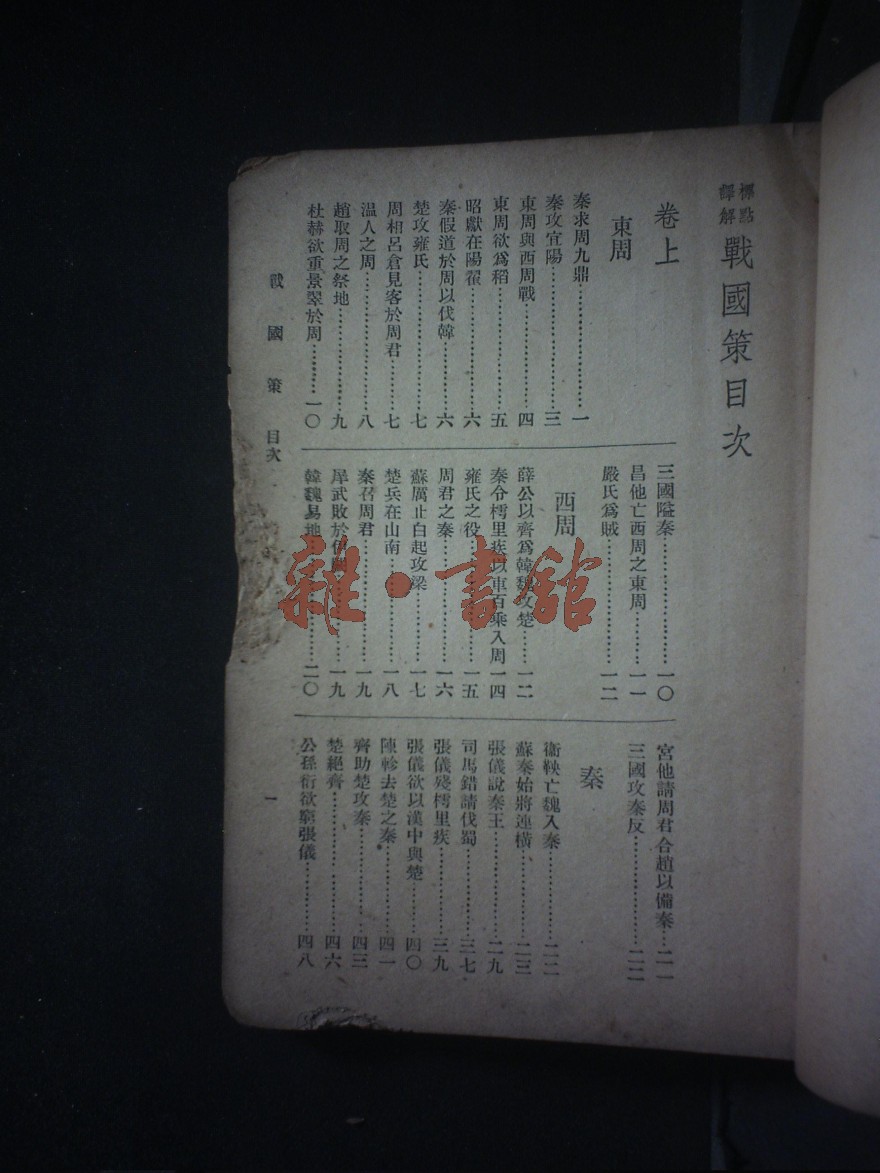 標點
譯解
戰國策目次
卷上
東周
秦求周九鼎……一
秦攻宜陽……三
東周與西周戰……四
東周欲爲稻……五
昭獻在陽翟……六
秦假道於周以伐韓……六
楚攻雍氏……七
周相呂倉見客於周君……七
溫人之周……八
趙取周之祭地……九
杜赫欲重景翠於周……一〇
三國隘秦……一〇
昌他亡西周之東周……一一
嚴氏爲賊……一二
西周
薛公以齊爲韓魏攻楚……一二
秦令樗里疾以車百乘入周一四
雍氏之役……一五
周君之秦……一六
蘇厲止白起攻梁……一七
楚兵在山南……一八
秦召周君……一九
犀武敗於伊……一九
韓魏易地……二〇
宮他請周君合趙以備秦…二一
三國攻秦反……二二
秦
衞鞅亡魏入秦……二二
蘇秦始將連橫……二三
張儀說秦王……二九
司馬錯請伐蜀……三七
張儀殘樗里疾……三九
張儀欲以漢中與楚……四〇
陳軫去楚之秦……四一
齊助楚攻秦……四三
楚絕齊……四六
公孫衍欲窮張儀……四八
戰國策 目次
一
雜·書館